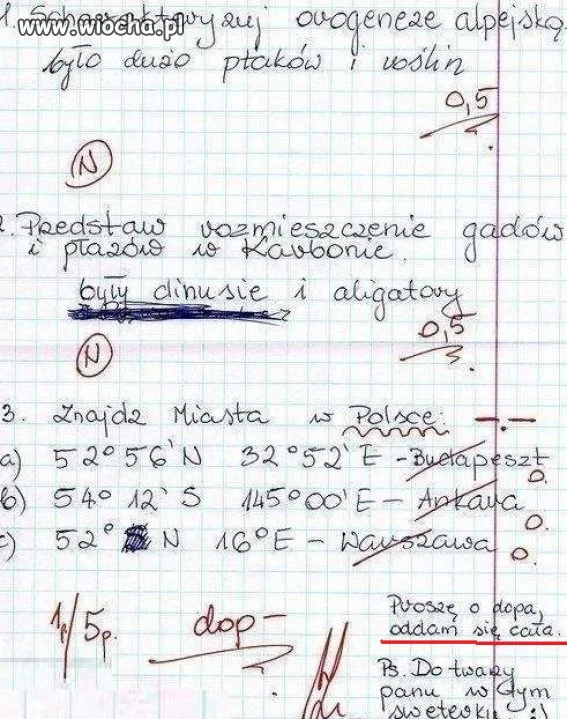 www.wiocha.pl
1. Scharakteryzuj orogeneze alpejską.
było dużo ptaków i roślin
0,5
N
2. Przedstaw rozmieszczenie gadów
i płazów w Karbonie.
były dinusie i aligatory
0,5
N
3. Znajdz Miasta w Polsce: -.-
a) 52° 56' N 32° 52' E - Budapeszt 0.
b) 54° 12' S 145° 00' E - Ankara 0.
c) 52° N 16° E - Warszawa 0.
1p/5p. dop-
Proszę o dopa,
oddam się cała.
Ps. Do twarzy
panu w tym
sweterku :)